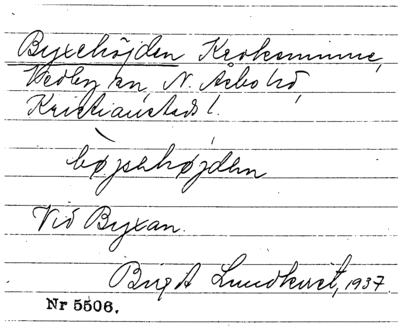 Byxehöjden Kroksminne,
Vedby sn, N. Åsbo hd,
Kristianstads l.
bøjsehøjden
Vid Byxan.
Birgit Lundkvist, 1937
Nr 5506.